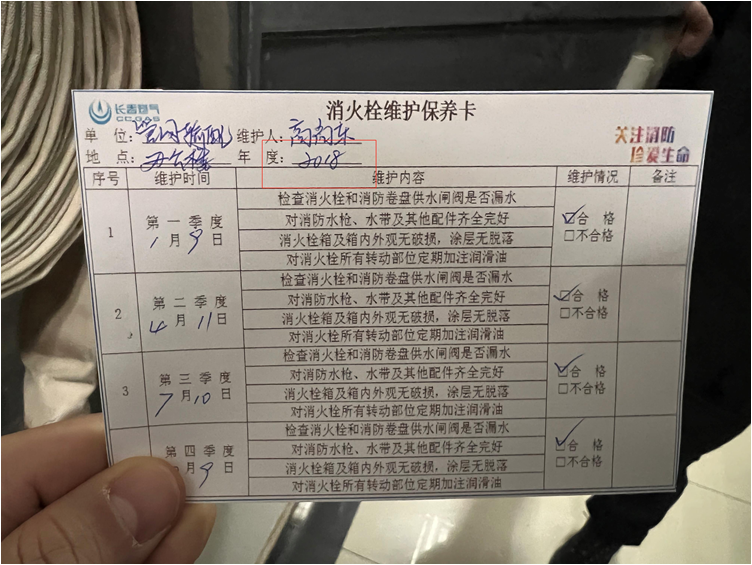 长春燃气 消火栓维护保养卡
CCGAS
单 位: 维护人:
关注消防
地 点: 办公楼 年 度: 2018
珍爱生命
序号 维护时间 维护内容 维护情况 备注
检查消火栓和消防卷盘供水闸阀是否漏水
1 第一季度 对消防水枪、水带及其他配件齐全完好 ☑合 格
1月9日 消火栓箱及箱内外观无破损，涂层无脱落 □不合格
对消火栓所有转动部位定期加注润滑油
检查消火栓和消防卷盘供水闸阀是否漏水
2 第二季度 对消防水枪、水带及其他配件齐全完好 ☑合 格
4月11日 消火栓箱及箱内外观无破损，涂层无脱落 □不合格
对消火栓所有转动部位定期加注润滑油
检查消火栓和消防卷盘供水闸阀是否漏水
3 第三季度 对消防水枪、水带及其他配件齐全完好 ☑合 格
7月10日 消火栓箱及箱内外观无破损，涂层无脱落 □不合格
对消火栓所有转动部位定期加注润滑油
检查消火栓和消防卷盘供水闸阀是否漏水
第四季度 对消防水枪、水带及其他配件齐全完好 ☑合 格
月9日 消火栓箱及箱内外观无破损，涂层无脱落 □不合格
对消火栓所有转动部位定期加注润滑油